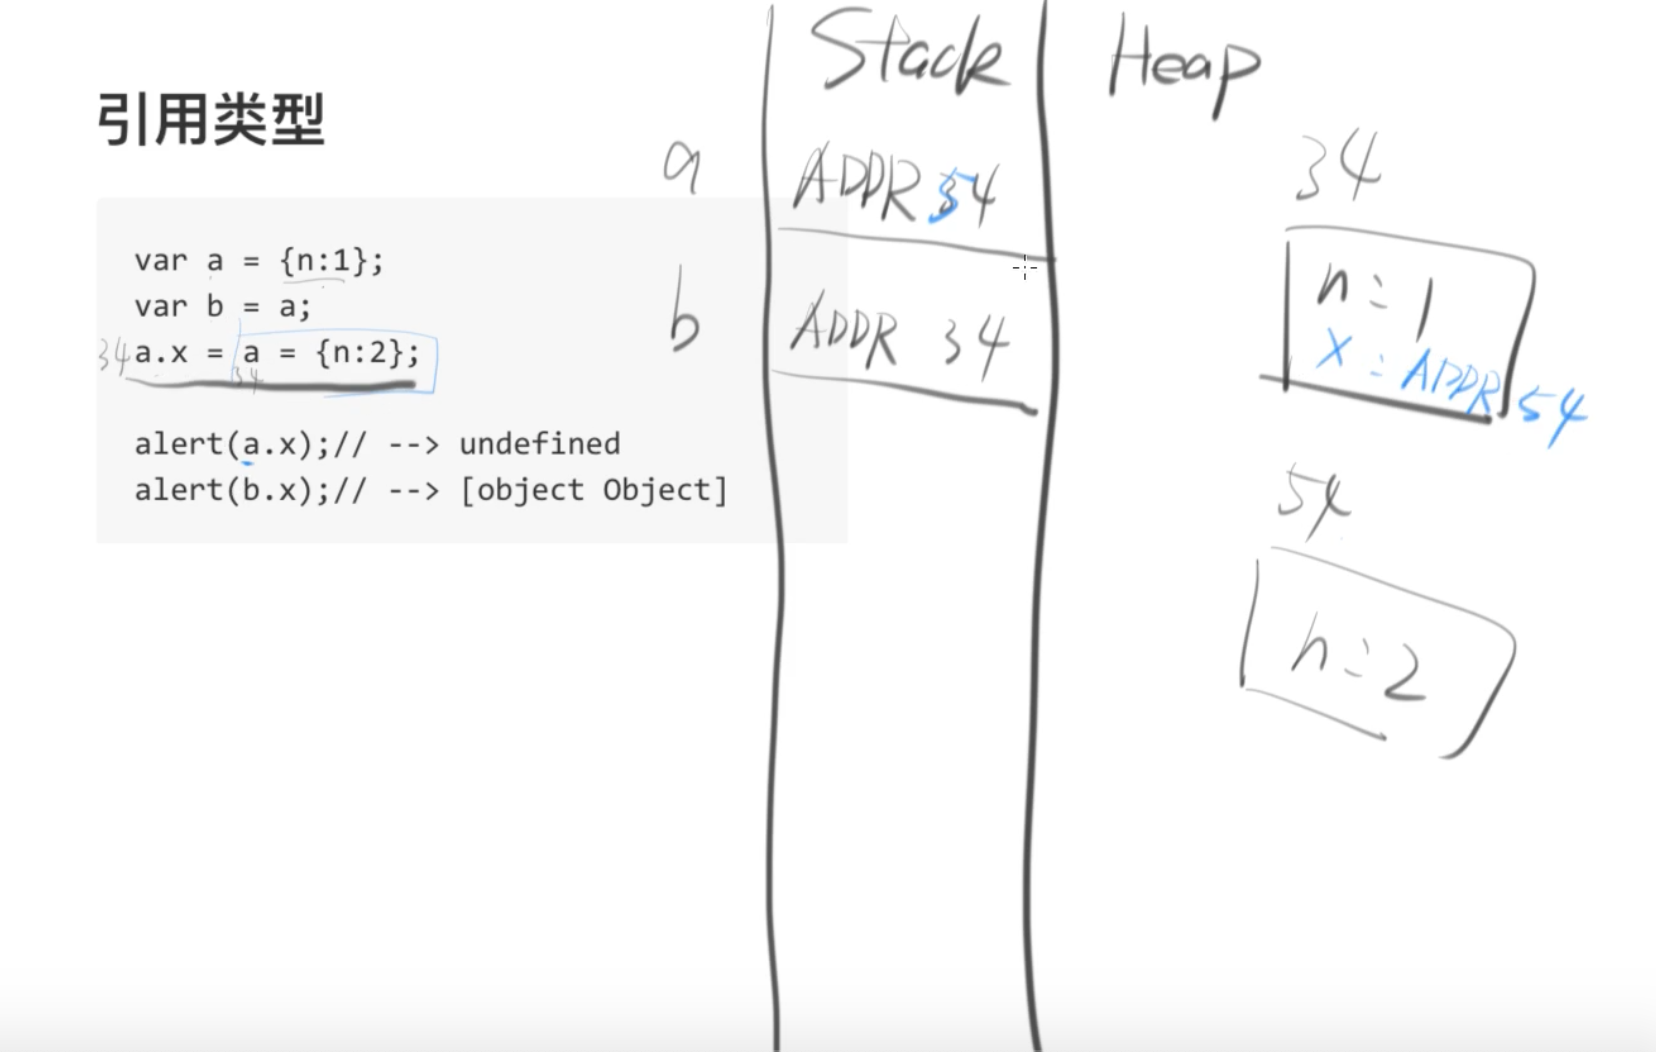 引用类型
var a = {n:1};
var b = a;
34 a.x = a = {n:2};
34
alert(a.x);// --> undefined
alert(b.x);// --> [object Object]
Stack
Heap
a
ADDR 54
b
ADDR 34
34
n:1
x:ADDR 54
54
n:2